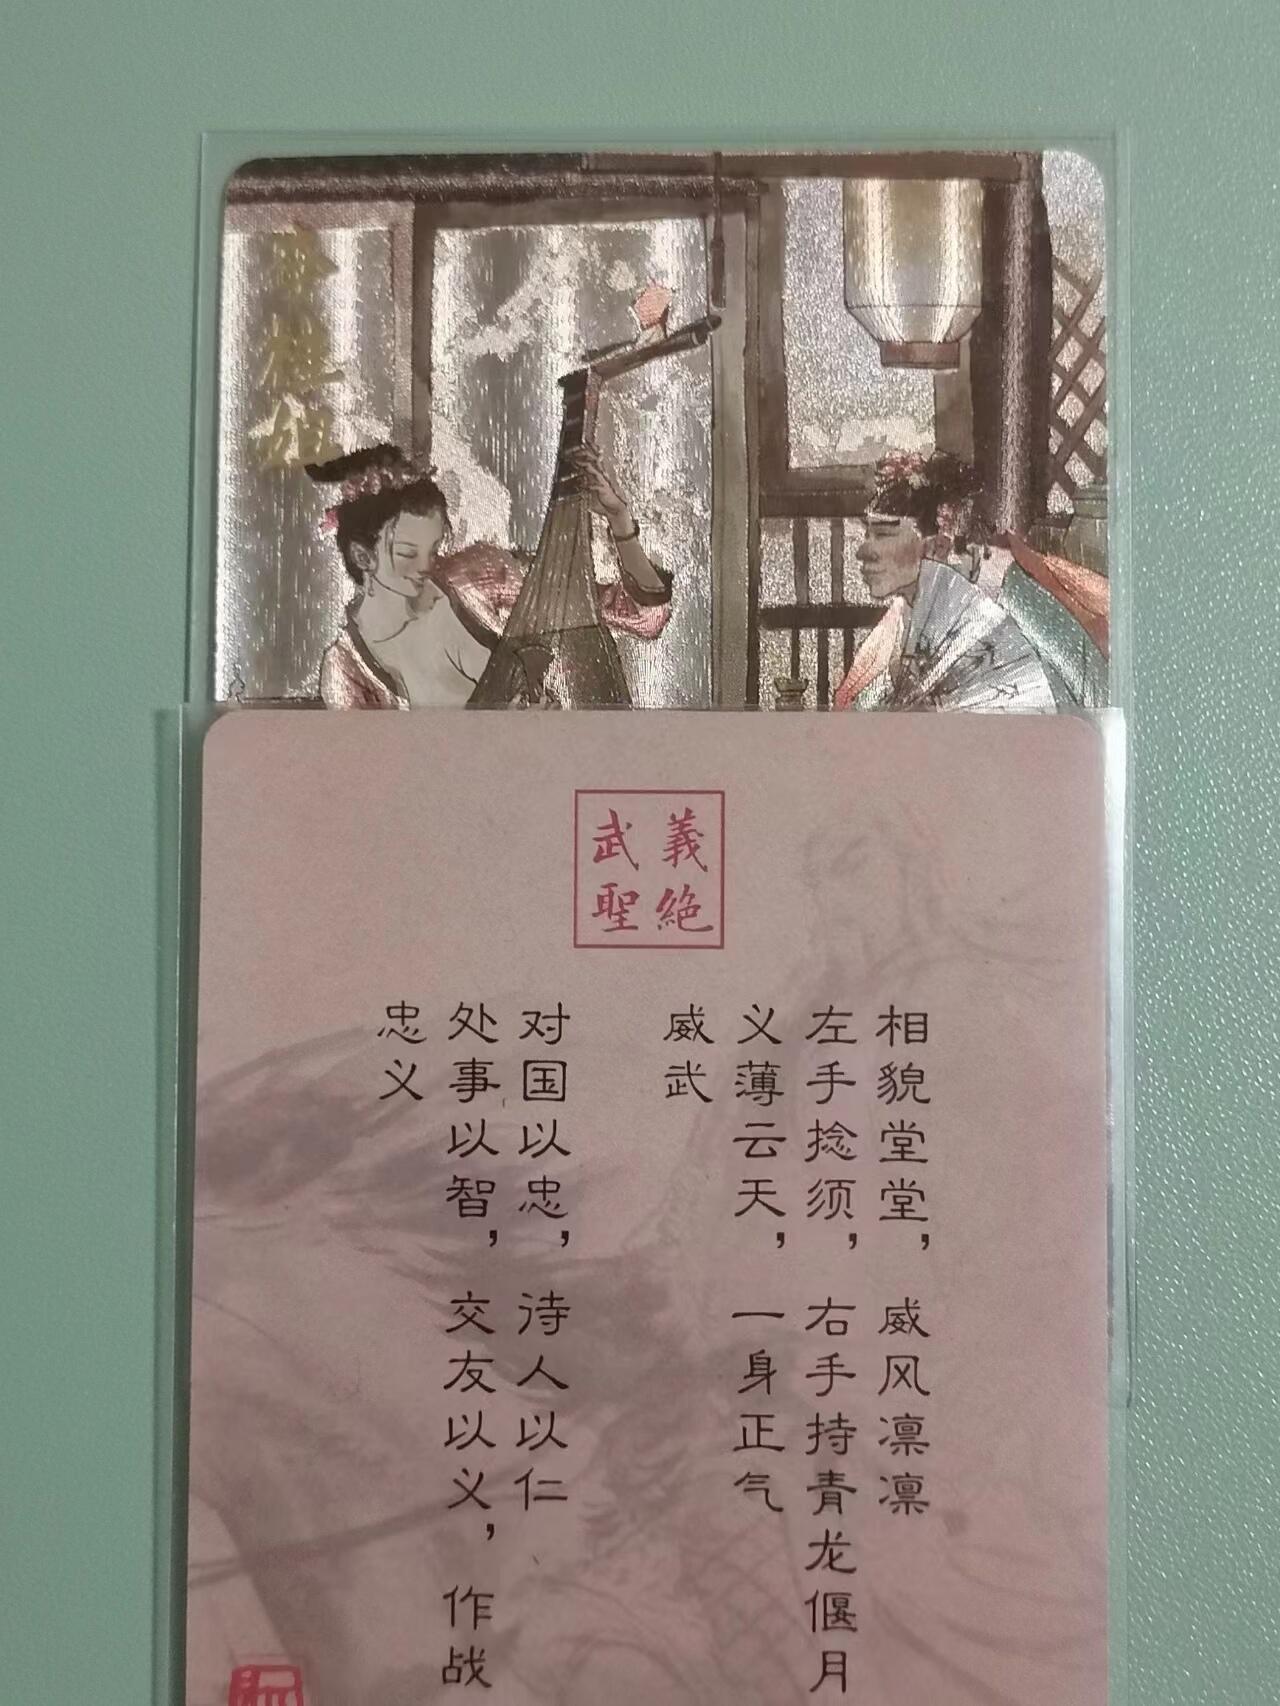 義絶
武聖
相貌堂堂，威风凛凛
左手捻须，右手持青龙偃月
义薄云天，一身正气
威武
对国以忠，待人以仁
处事以智，交友以义，作战
忠义